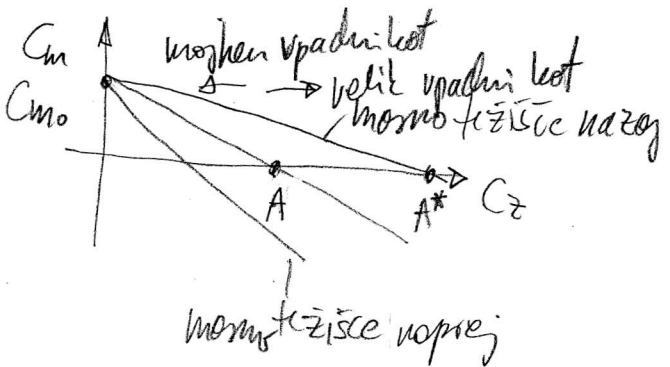 Cm
majhen vpadni kot
velik vpadni kot
Cm₀
masno težišče nazaj
A
A*
Cz
masno težišče naprej